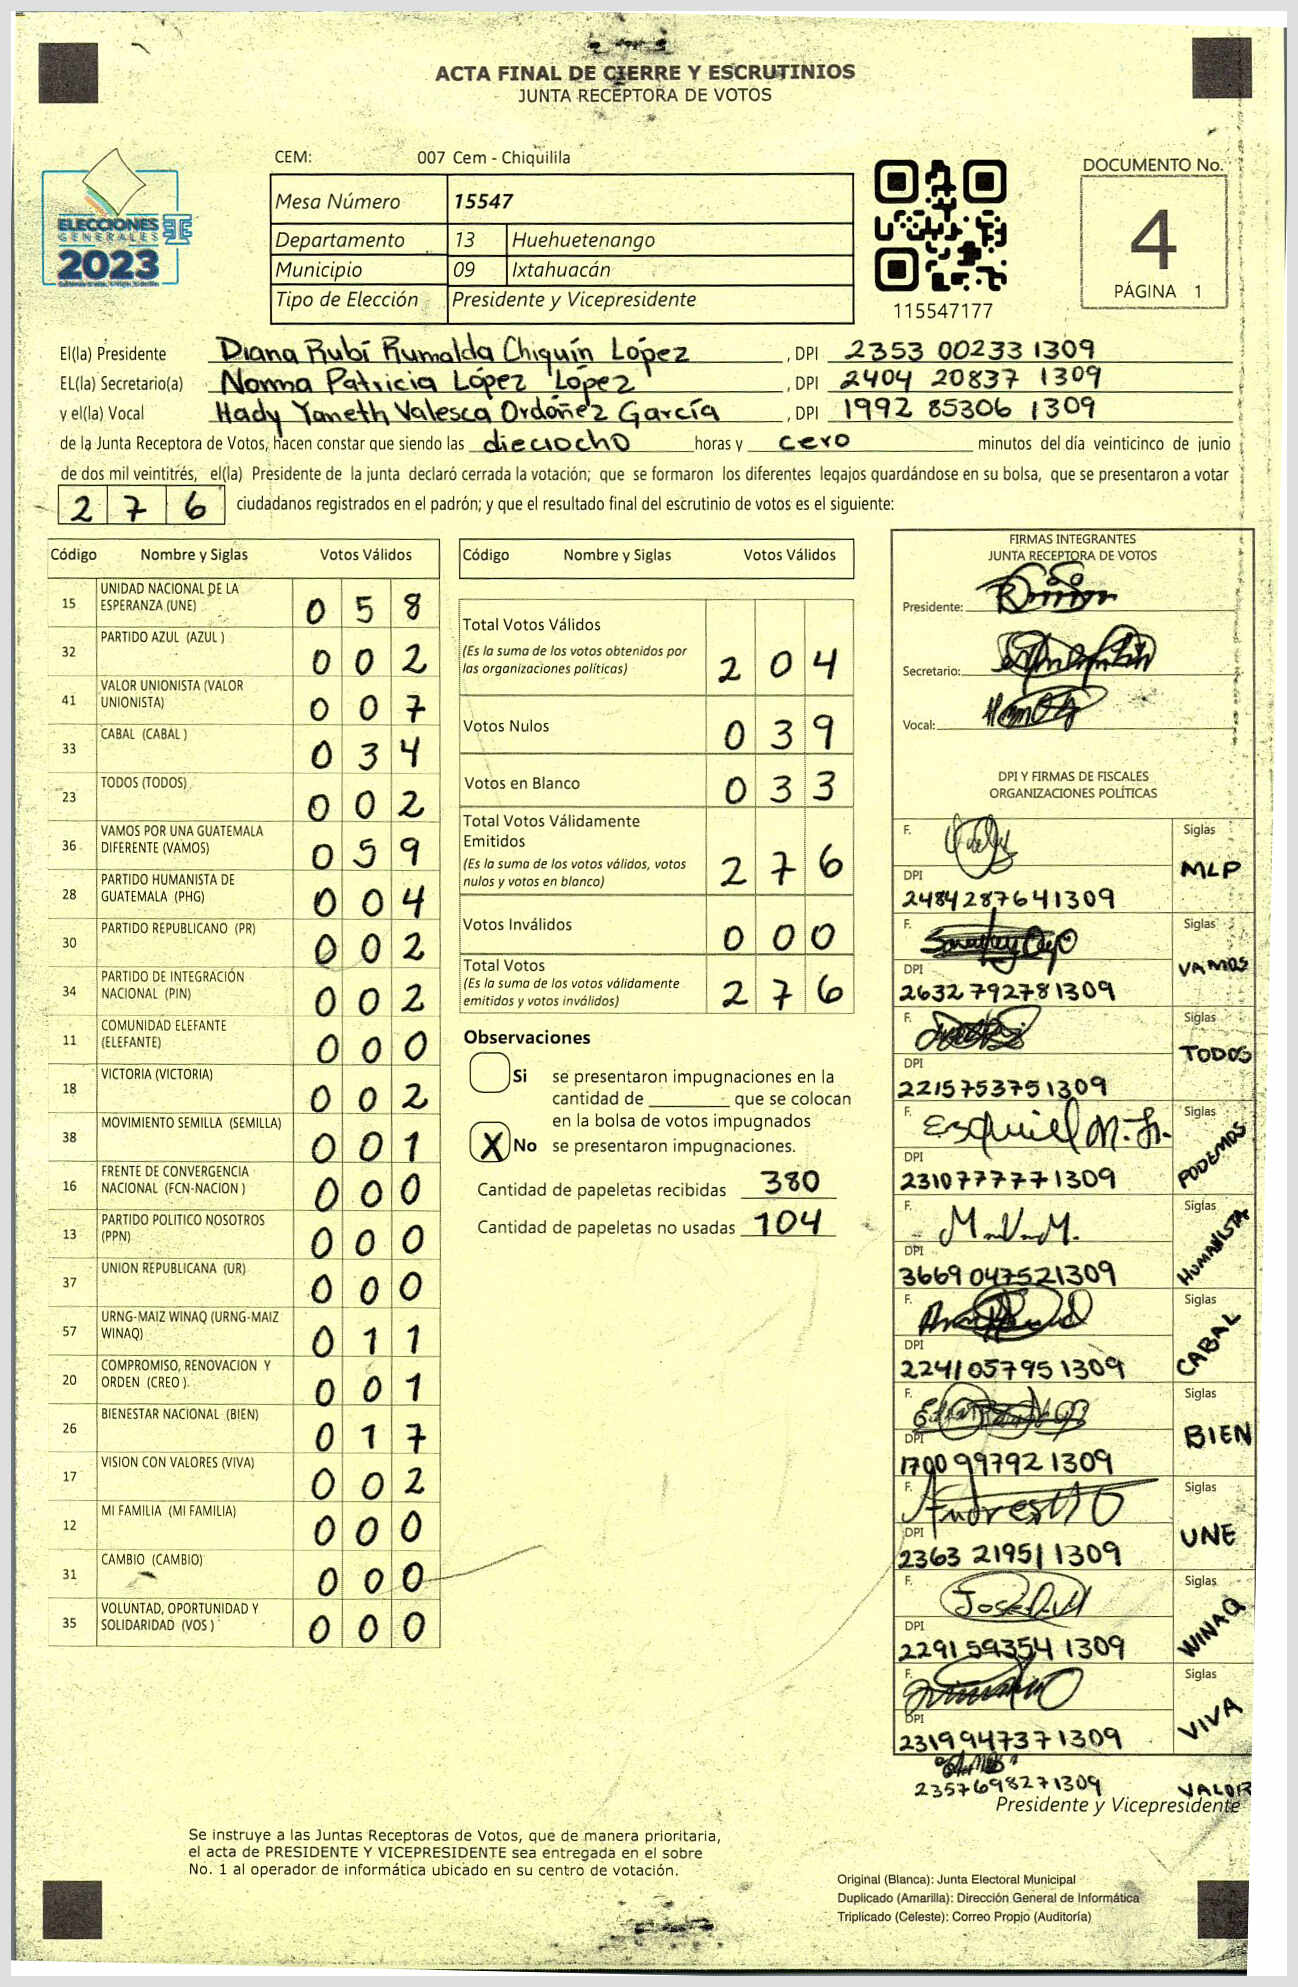 ACTA FINAL DE CIERRE Y ESCRUTINIOS
JUNTA RECEPTORA DE VOTOS
CEM: 007 Cem - Chiquilila
DOCUMENTO No.
4
PÁGINA 1
ELECCIONES
GENERALES
2023
Mesa Número 15547
Departamento 13 Huehuetenango
Municipio 09 Ixtahuacán
Tipo de Elección Presidente y Vicepresidente
115547177
El(la) Presidente Diana Rubí Rumalda Chiquín López , DPI 2353 00233 1309
EL(la) Secretario(a) Norma Patricia López López , DPI 2404 20837 1309
y el(la) Vocal Hady Yaneth Valesca Ordóñez García , DPI 1992 85306 1309
de la Junta Receptora de Votos, hacen constar que siendo las dieciocho horas y cero minutos del día veinticinco de junio
de dos mil veintitrés, el(la) Presidente de la junta declaró cerrada la votación; que se formaron los diferentes legajos guardándose en su bolsa, que se presentaron a votar
276 ciudadanos registrados en el padrón; y que el resultado final del escrutinio de votos es el siguiente:
Código Nombre y Siglas Votos Válidos
15 UNIDAD NACIONAL DE LA ESPERANZA (UNE) 058
32 PARTIDO AZUL (AZUL ) 002
41 VALOR UNIONISTA (VALOR UNIONISTA) 007
33 CABAL (CABAL ) 034
23 TODOS (TODOS) 002
36 VAMOS POR UNA GUATEMALA DIFERENTE (VAMOS) 059
28 PARTIDO HUMANISTA DE GUATEMALA (PHG) 004
30 PARTIDO REPUBLICANO (PR) 002
34 PARTIDO DE INTEGRACIÓN NACIONAL (PIN) 002
11 COMUNIDAD ELEFANTE (ELEFANTE) 000
18 VICTORIA (VICTORIA) 002
38 MOVIMIENTO SEMILLA (SEMILLA) 001
16 FRENTE DE CONVERGENCIA NACIONAL (FCN-NACION ) 000
13 PARTIDO POLITICO NOSOTROS (PPN) 000
37 UNION REPUBLICANA (UR) 000
57 URNG-MAIZ WINAQ (URNG-MAIZ WINAQ) 011
20 COMPROMISO, RENOVACION Y ORDEN (CREO ) 001
26 BIENESTAR NACIONAL (BIEN) 017
17 VISION CON VALORES (VIVA) 002
12 MI FAMILIA (MI FAMILIA) 000
31 CAMBIO (CAMBIO) 000
35 VOLUNTAD, OPORTUNIDAD Y SOLIDARIDAD (VOS ) 000
Código Nombre y Siglas Votos Válidos
Total Votos Válidos
(Es la suma de los votos obtenidos por
las organizaciones políticas) 204
Votos Nulos 039
Votos en Blanco 033
Total Votos Válidamente
Emitidos
(Es la suma de los votos válidos, votos
nulos y votos en blanco) 276
Votos Inválidos 000
Total Votos
(Es la suma de los votos válidamente
emitidos y votos inválidos) 276
Observaciones
Si se presentaron impugnaciones en la
cantidad de ________ que se colocan
en la bolsa de votos impugnados
X No se presentaron impugnaciones.
Cantidad de papeletas recibidas 380
Cantidad de papeletas no usadas 104
FIRMAS INTEGRANTES
JUNTA RECEPTORA DE VOTOS
Presidente:
Secretario:
Vocal:
DPI Y FIRMAS DE FISCALES
ORGANIZACIONES POLÍTICAS
F. Siglas MLP
DPI 2484287641309
F. Siglas VAMOS
DPI 2632792781309
F. Siglas TODOS
DPI 2215753751309
F. Esquiel Siglas PODEMOS
DPI 2310777771309
F. Siglas HUMANISTA
DPI 3669047521309
F. Siglas CABAL
DPI 2241057951309
F. Siglas BIEN
DPI 1700997921309
F. Siglas UNE
DPI 2363219511309
F. Siglas WINAQ
DPI 2291593541309
F. Siglas VIVA
DPI 2319947371309
2357698271309 VALOR
Presidente y Vicepresidente
Se instruye a las Juntas Receptoras de Votos, que de manera prioritaria,
el acta de PRESIDENTE Y VICEPRESIDENTE sea entregada en el sobre
No. 1 al operador de informática ubicado en su centro de votación.
Original (Blanca): Junta Electoral Municipal
Duplicado (Amarilla): Dirección General de Informática
Triplicado (Celeste): Correo Propio (Auditoría)